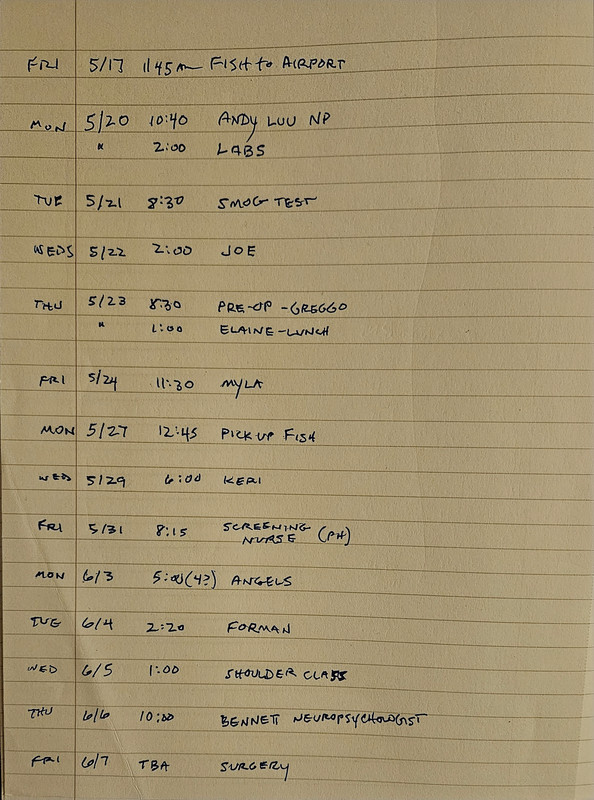 FRI 5/17 1145am FISH to AIRPORT
MON 5/20 10:40 ANDY LUU NP
" 2:00 LABS
TUE 5/21 8:30 SMOG TEST
WEDS 5/22 2:00 JOE
THU 5/23 8:30 PRE-OP -GREGGO
" 1:00 ELAINE-LUNCH
FRI 5/24 11:30 MYLA
MON 5/27 12:45 PICK UP FISH
WED 5/29 6:00 KERI
FRI 5/31 8:15 SCREENING
NURSE (PH)
MON 6/3 5:00(4?) ANGELS
TUE 6/4 2:20 FORMAN
WED 6/5 1:00 SHOULDER CLASS
THU 6/6 10:00 BENNETT NEUROPSYCHOLOGIST
FRI 6/7 TBA SURGERY